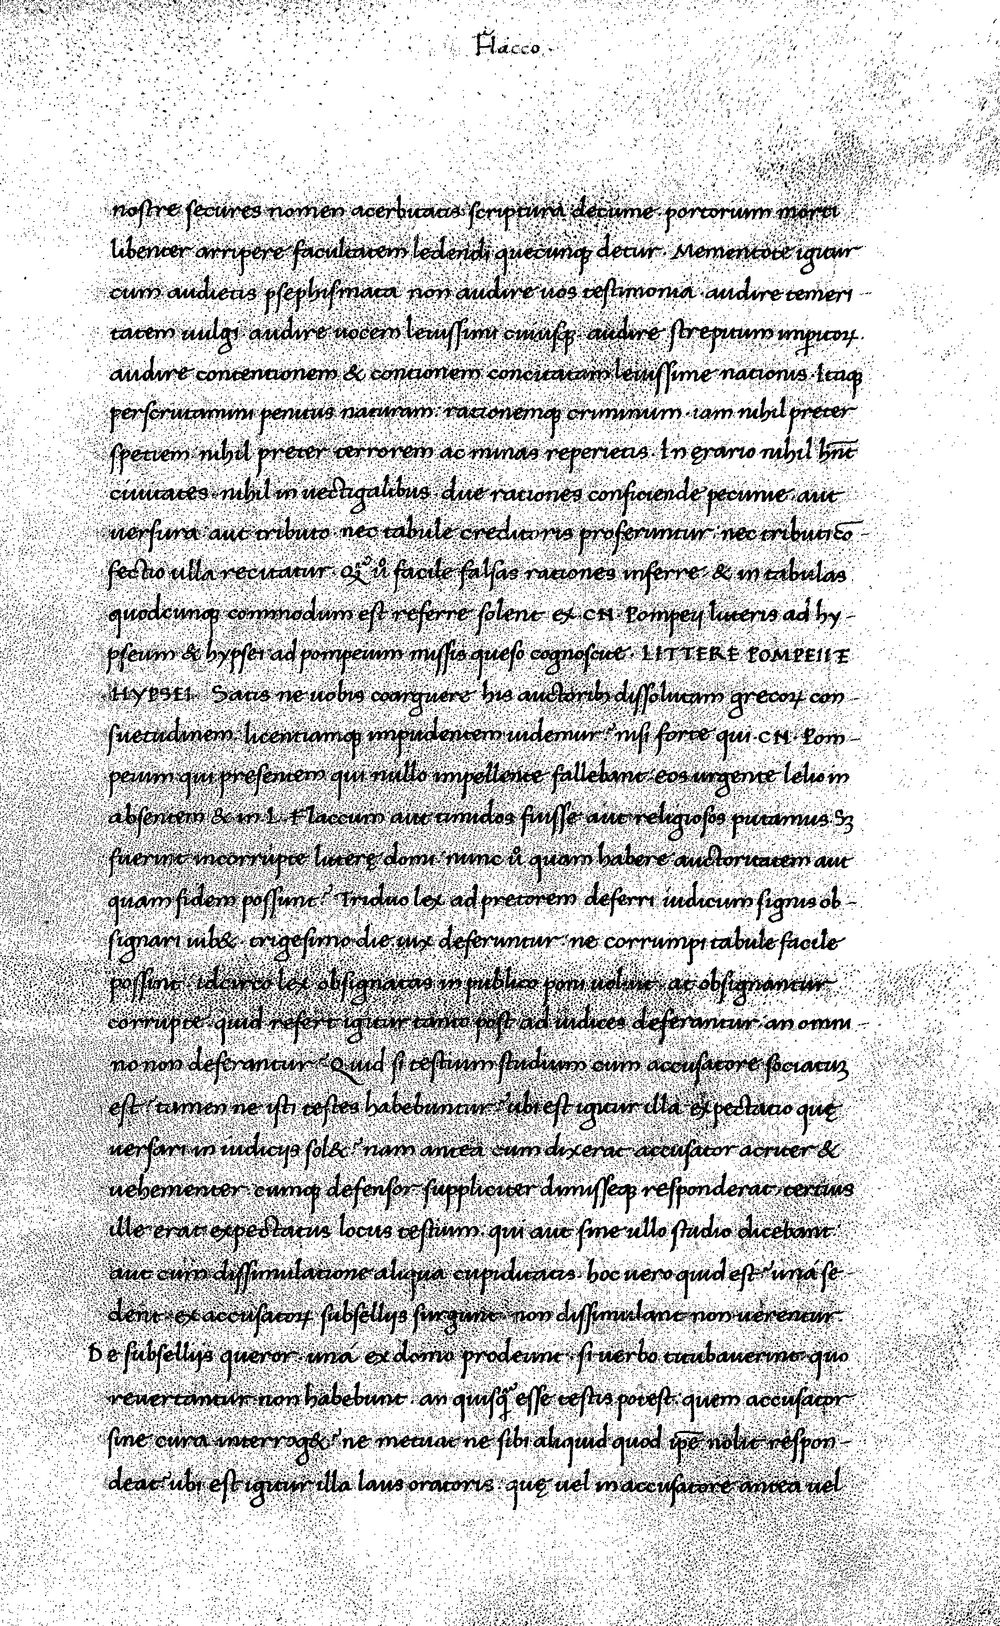 Flacco
nostre secures nomen acerbitatis scriptura decume portorium morti
libenter arripere facultatem ledendi quecunqꝫ detur. Mementote igitur
cum audietis psephismata non audire uos testimonia audire temeri-
tatem uulgi audire uocem leuissimi cuiusqꝫ audire strepitum imꝑitoꝝ.
audire contentionem & contionem concitatam leuissime nationis. Itaqꝫ
perscrutamini penitus naturam rationemqꝫ criminum. iam nihil preter
spetiem nihil preter terrorem ac minas reperietis. In ęrario nihil hñt
ciuitates. nihil in uectigalibus. due rationes conficiende pecunie. aut
uersura aut tributo. nec tabule creditoris proferuntur. nec tributi cō-
fectio ulla recitatur. facile falsas rationes inferre & in tabulas
quodcunqꝫ commodum est referre solent ex CN. Pompeij litteris ad hy-
pseum & hypsei ad pompeium missis queso cognoscite. LITTERE POMPEII E
HYPSEI. Satis ne uobis coarguere his auctoribꝫ dissolutam grecoꝝ con-
suetudinem. licentiamqꝫ impudentem uidemur? nisi forte qui CN. Pom-
peium qui presentem qui nullo impellente fallebant. eos urgente lelio in
absentem & in L. Flaccum aut timidos fuisse aut religiosos putamus. Sꝫ
fuerint incorrupte litterę domi. nunc ů quam habere auctoritatem aut
quam fidem possunt? Triduo lex ad pretorem deferri iudicum signis ob-
signari iub&. trigesimo die uix deferuntur. ne corrumpi tabule facile
possint. idcirco lex obsignatas in publico poni uoluit. at obsignantur
corrupte. quid refert igitur tanto post ad iudices deferantur. an omni-
no non deferantur? Quid si testium studium cum accusatore sociatuꝫ
est? tamen ne isti testes habebuntur? ubi est igitur illa expectatio quę
uersari in iudicijs sol&? nam antea cum dixerat accusator acriter &
uehementer. cumqꝫ defensor suppliciter dimisseqꝫ responderat. tertius
ille erat expectatus locus testium. qui aut sine ullo studio dicebant
aut cum dissimulatione aliqua cupiditatis. hoc uero quid est? uná se-
dent. ex accusatoꝝ subsellijs surgunt. non dissimulant non uerentur.
De subsellijs queror. uná ex domo prodeunt. si uerbo titubauerint quo
reuertantur non habebunt. an quisqꝫ esse testis potest. quem accusator
sine cura interrog&? ne metuat ne sibi aliquid quod ip̄e nolit respon-
deat? ubi est igitur illa laus oratoris. quę uel in accusatore antea uel